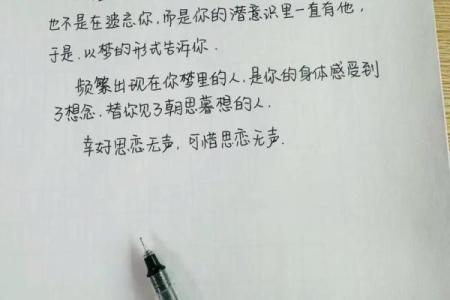 也不是在遗忘你，而是你的潜意识里一直有他，
于是，以梦的形式告诉你．
频繁出现在你梦里的人，是你的身体感受到
了想念，替你见了朝思暮想的人．
幸好思恋无声，可惜思恋无声．